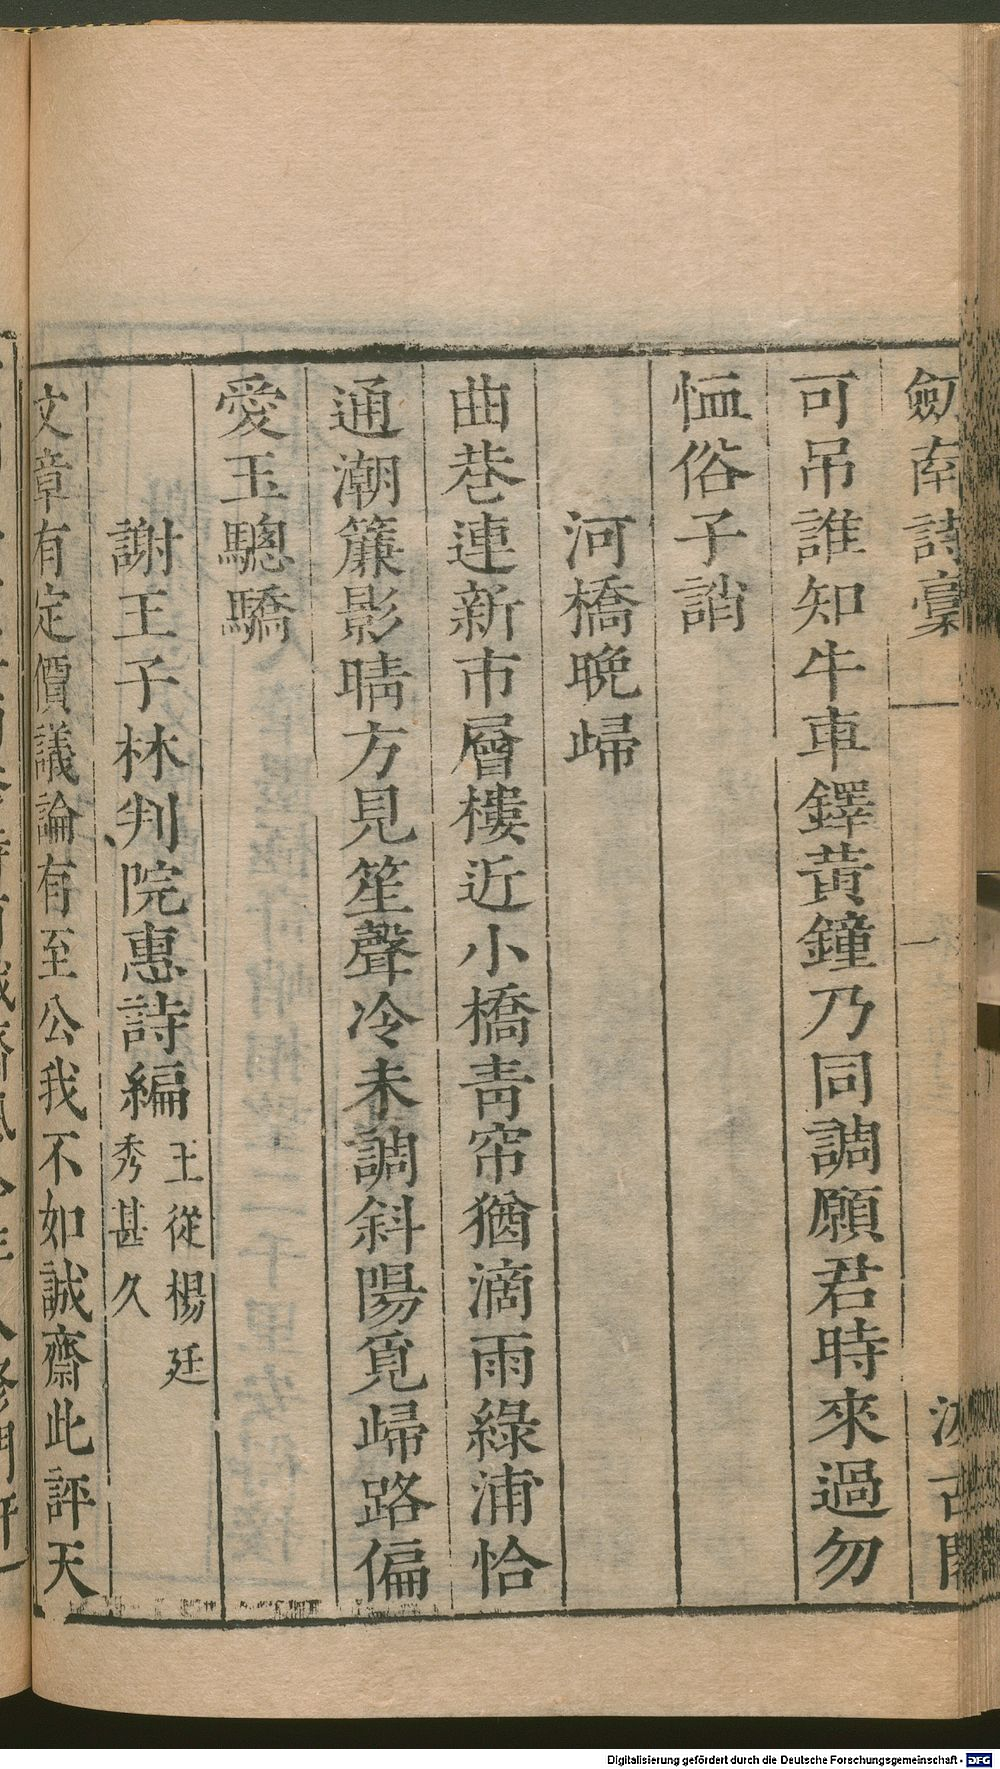 劎南詩稾
一
汲古閣
可吊誰知牛車鐸黃鐘乃同調願君時來過勿
恤俗子誚
河橋晚歸
曲巷連新市層樓近小橋靑帘猶滴雨綠浦恰
通潮簾影晴方見笙聲冷未調斜陽覓歸路偏
愛玉驄驕
謝王子林判院惠詩編
王從楊廷
秀甚久
文章有定價議論有至公我不如誠齋此評天
Digitalisierung gefördert durch die Deutsche Forschungsgemeinschaft - DFG